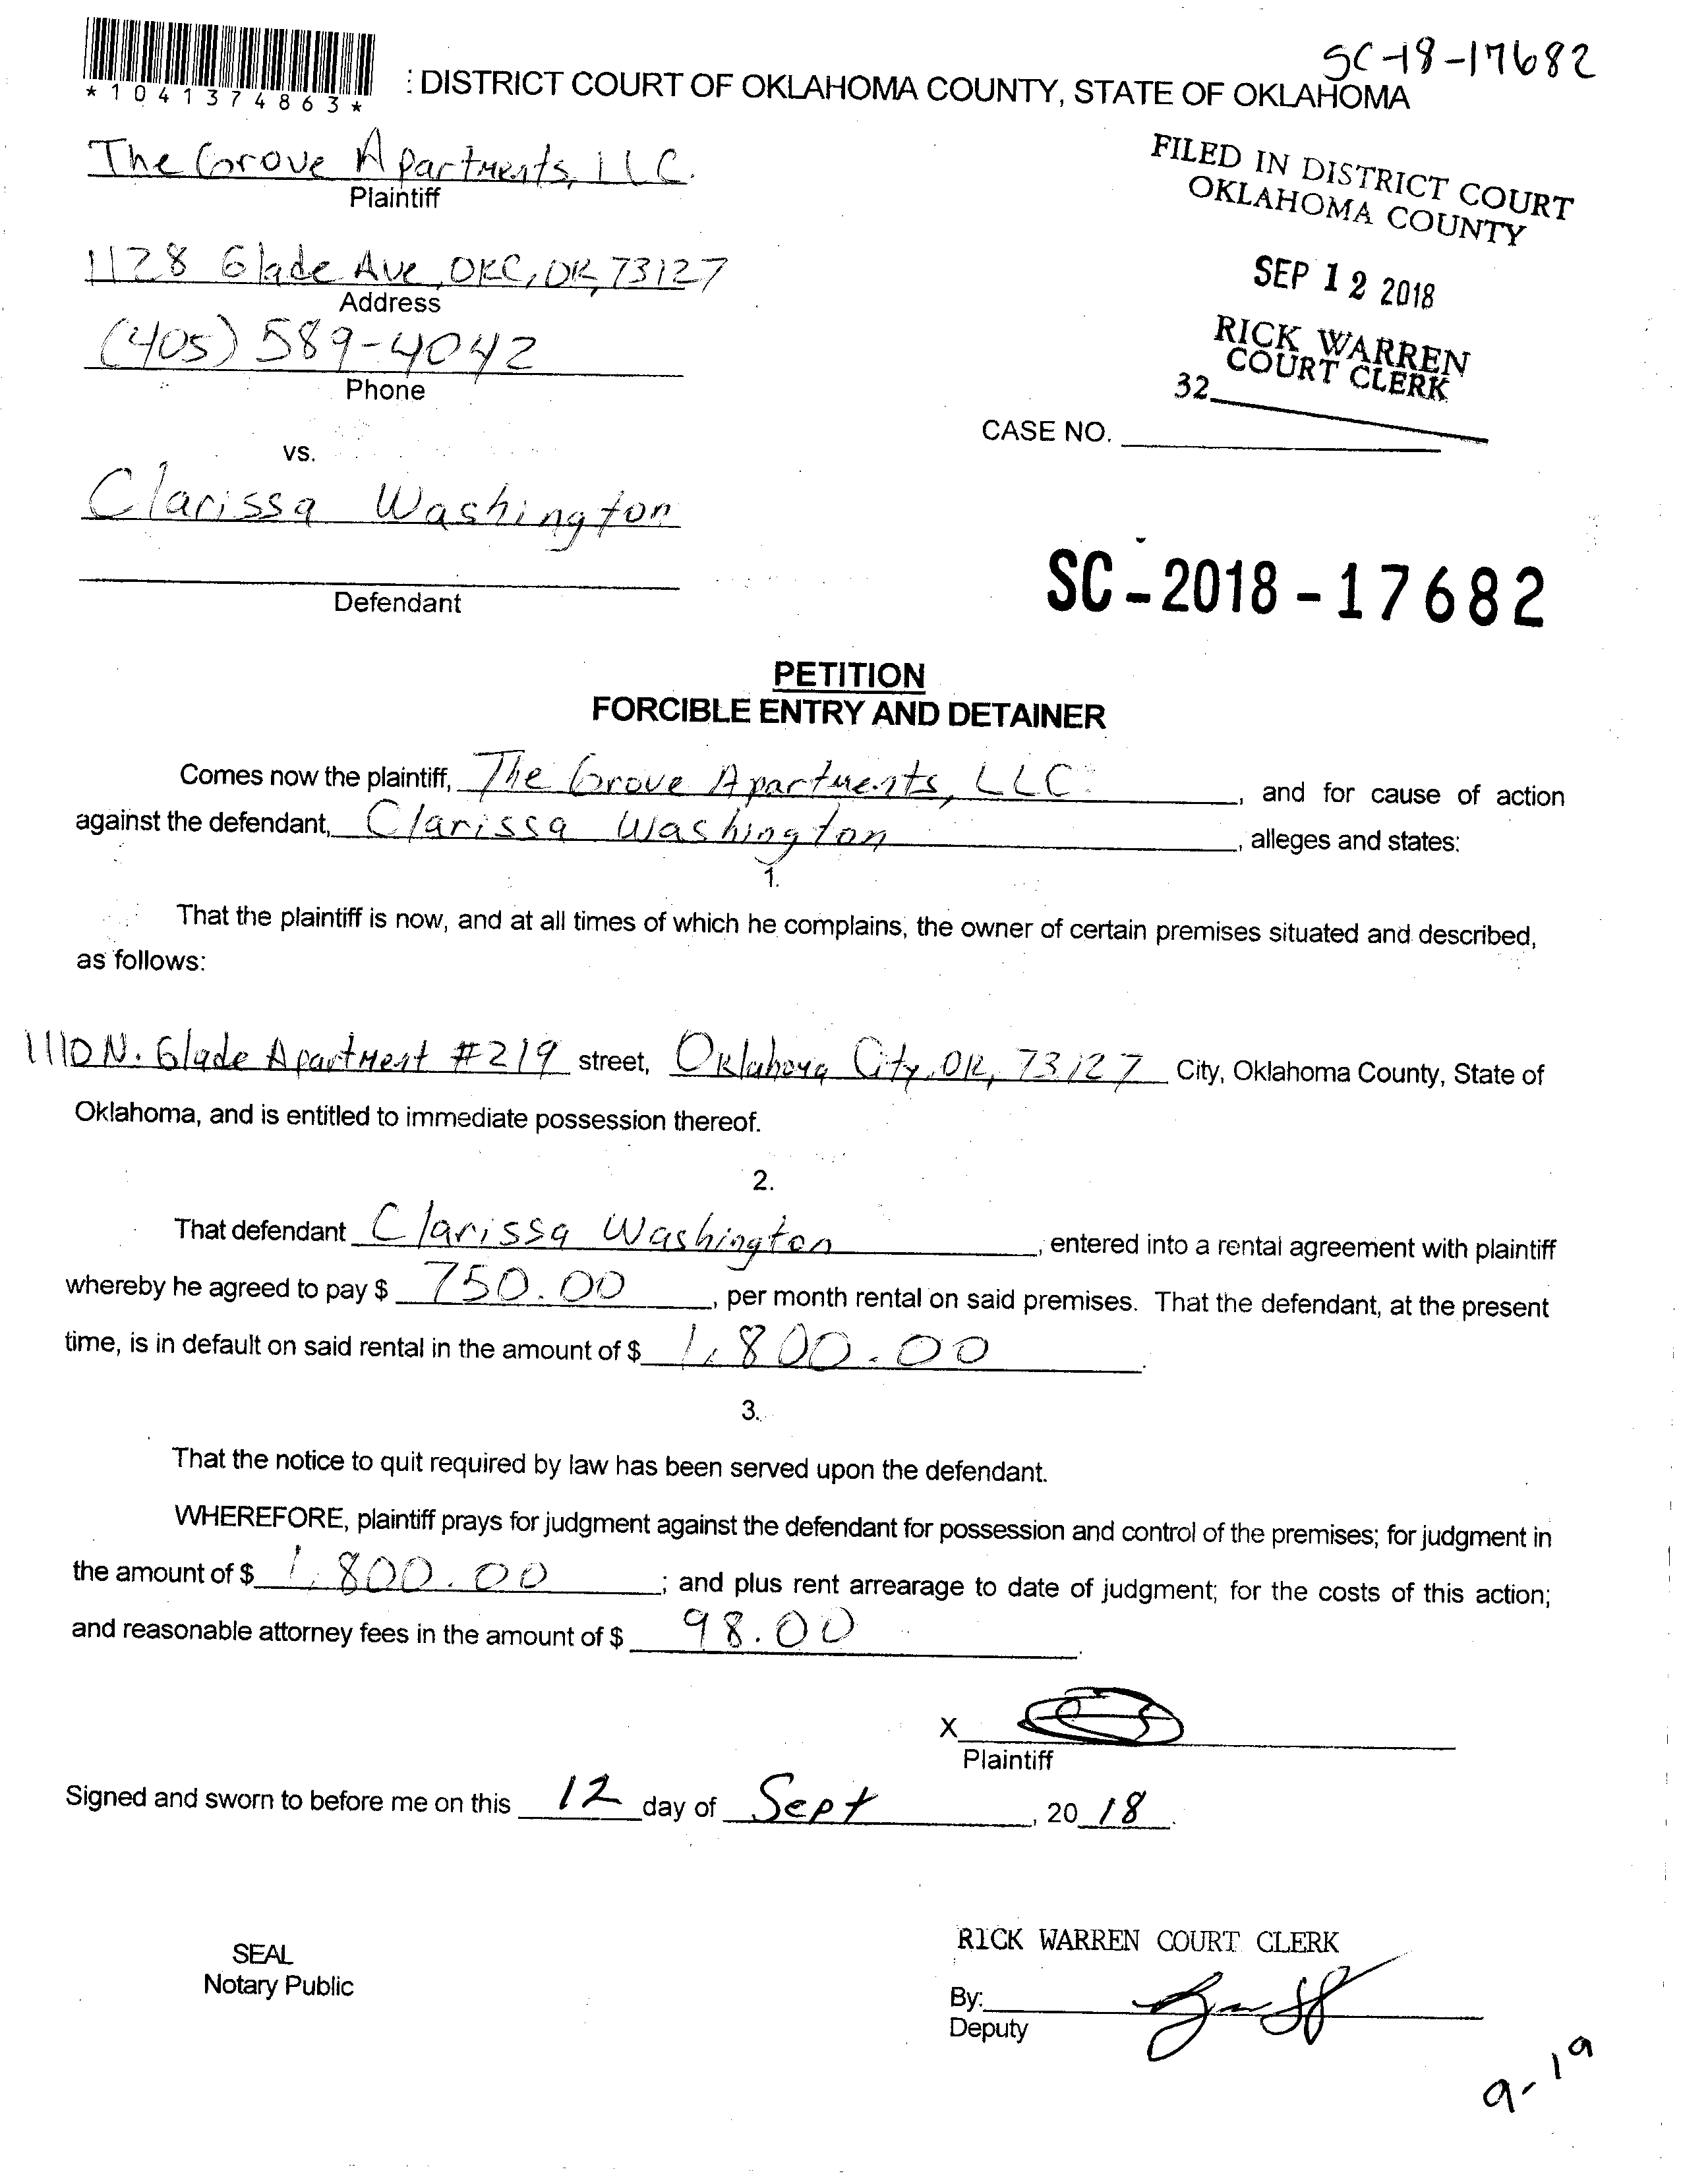 SC-18-17682
*1041374863*
: DISTRICT COURT OF OKLAHOMA COUNTY, STATE OF OKLAHOMA
The Grove Apartments, LLC.
Plaintiff
FILED IN DISTRICT COURT
OKLAHOMA COUNTY
1128 Glade Ave, OKC, OK, 73127
Address
SEP 12 2018
(405) 589-4042
Phone
RICK WARREN
COURT CLERK
32
CASE NO.
vs.
Clarissa Washington
Defendant
SC-2018-17682
PETITION
FORCIBLE ENTRY AND DETAINER
Comes now the plaintiff, The Grove Apartments, LLC. , and for cause of action
against the defendant, Clarissa Washington , alleges and states:
1.
That the plaintiff is now, and at all times of which he complains, the owner of certain premises situated and described,
as follows:
1110 N. Glade Apartment #219 street, Oklahoma City, OK, 73127 City, Oklahoma County, State of
Oklahoma, and is entitled to immediate possession thereof.
2.
That defendant Clarissa Washington , entered into a rental agreement with plaintiff
whereby he agreed to pay $ 750.00 , per month rental on said premises. That the defendant, at the present
time, is in default on said rental in the amount of $ 1,800.00 .
3.
That the notice to quit required by law has been served upon the defendant.
WHEREFORE, plaintiff prays for judgment against the defendant for possession and control of the premises; for judgment in
the amount of $ 1,800.00 ; and plus rent arrearage to date of judgment; for the costs of this action;
and reasonable attorney fees in the amount of $ 98.00 .
X
Plaintiff
Signed and sworn to before me on this 12 day of Sept , 20 18 .
SEAL
Notary Public
RICK WARREN COURT CLERK
By:
Deputy
9-19